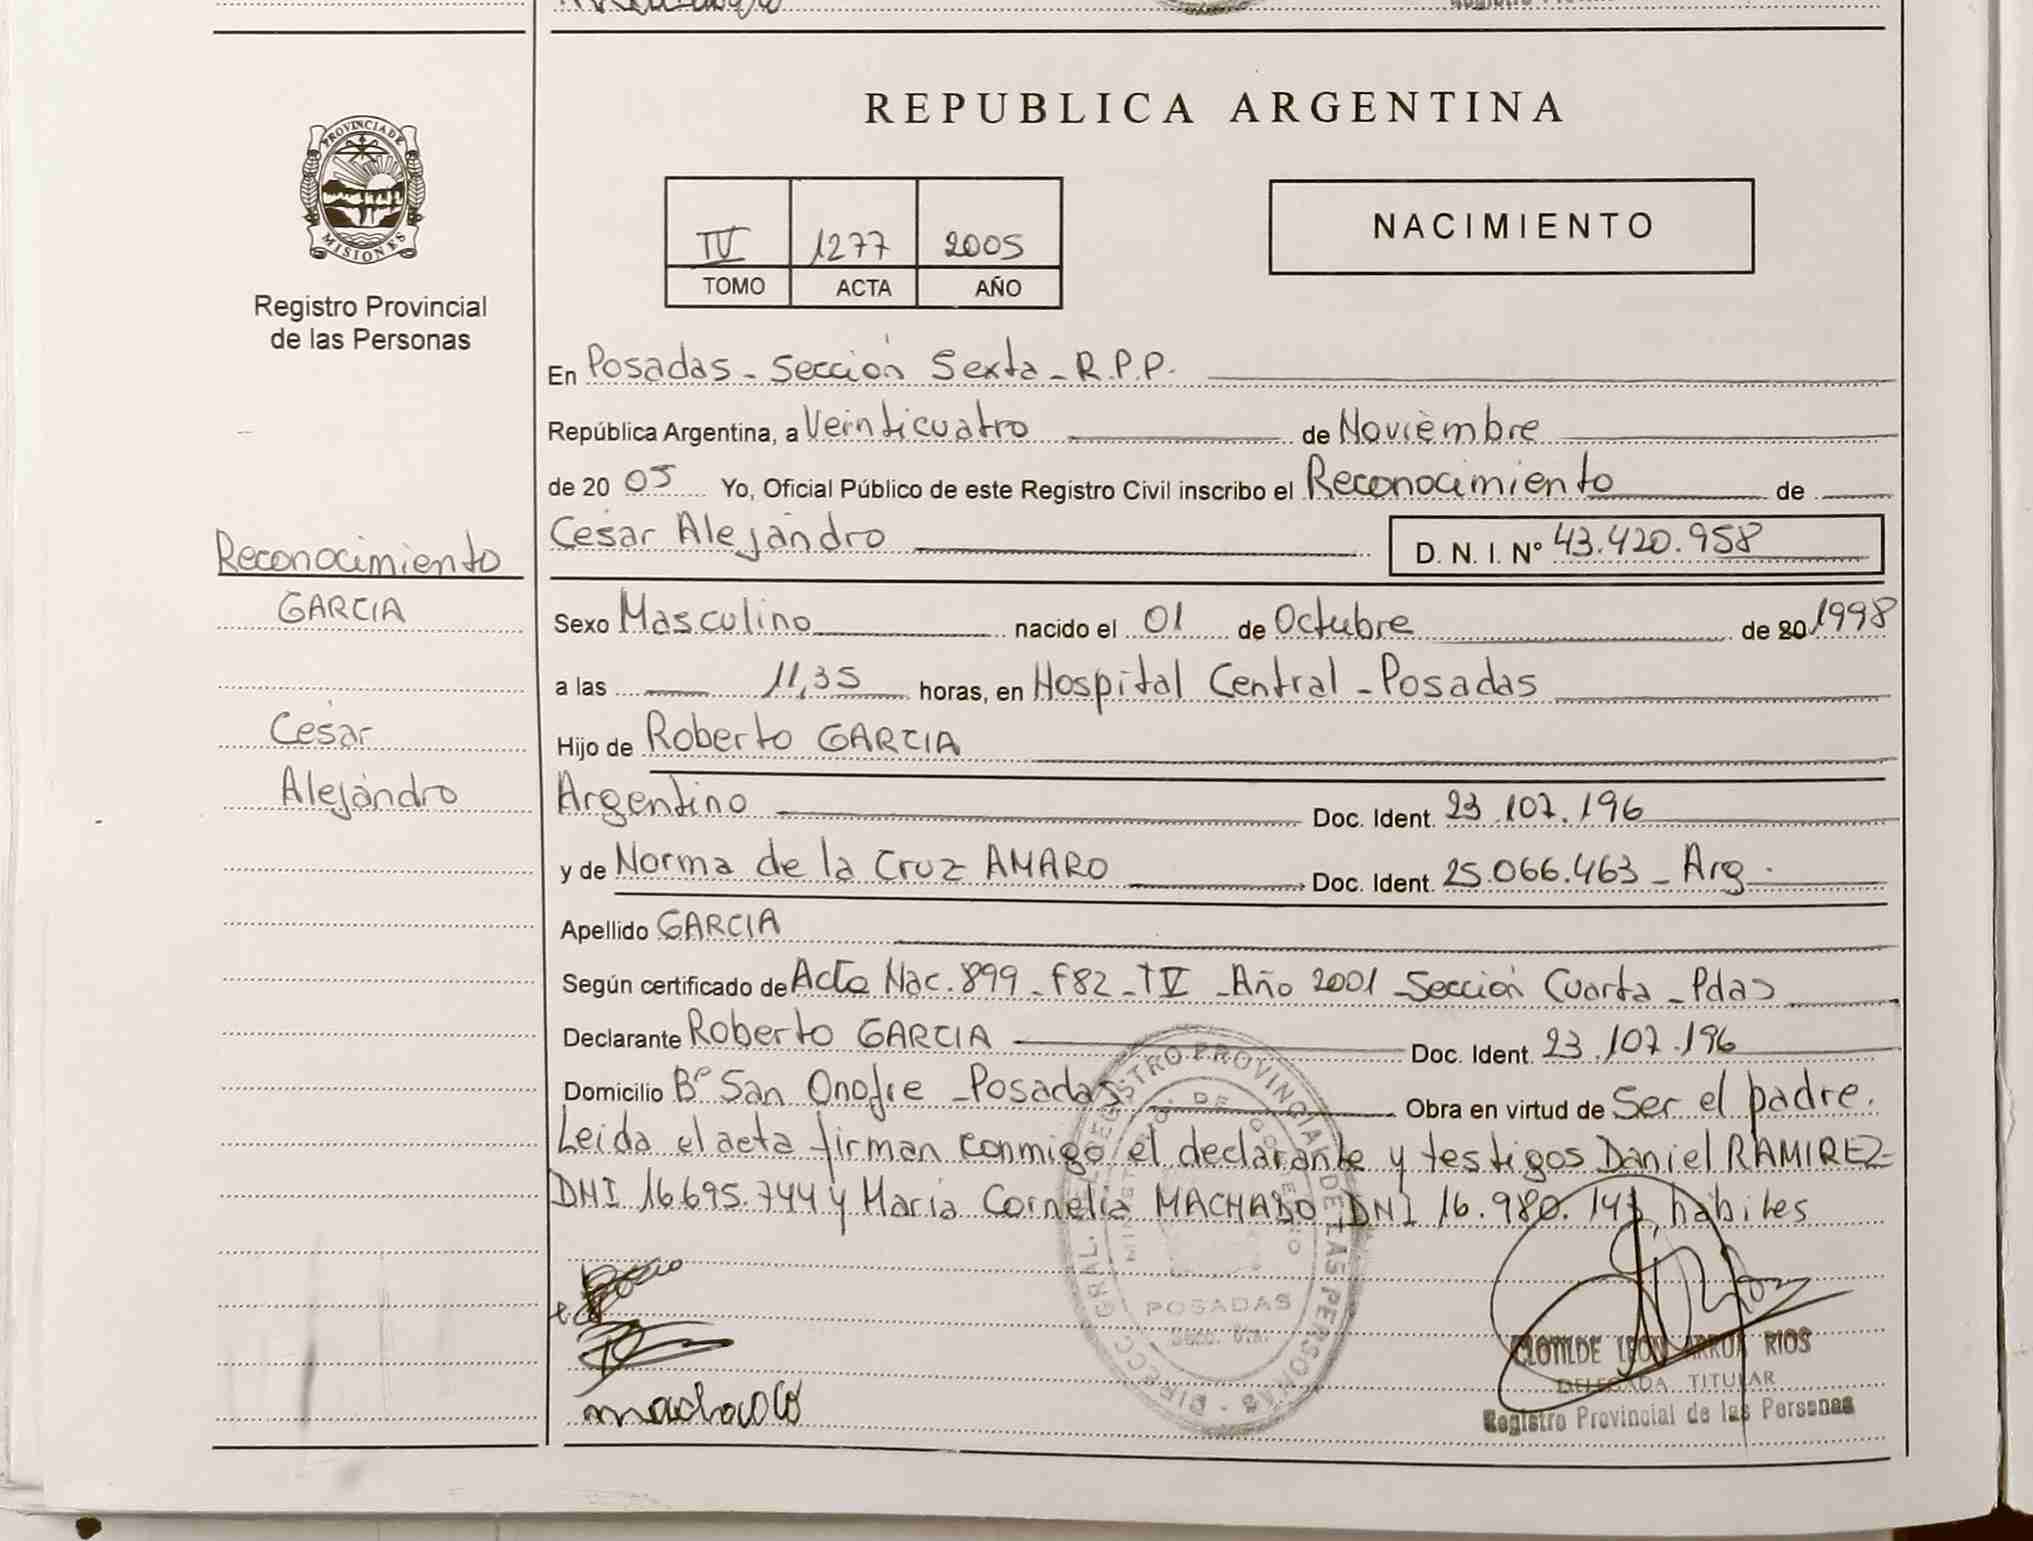 PROVINCIA DE
MISIONES
Registro Provincial
de las Personas
REPUBLICA ARGENTINA
IV 1277 2005
TOMO ACTA AÑO
NACIMIENTO
En Posadas - Sección Sexta - R.P.P.
República Argentina, a Veinticuatro de Noviembre
de 20 05 Yo, Oficial Público de este Registro Civil inscribo el Reconocimiento de
César Alejandro D. N. I. Nº 43.420.958
Reconocimiento
GARCIA
César
Alejandro
Sexo Masculino nacido el 01 de Octubre de 20 1998
a las 11,35 horas, en Hospital Central - Posadas
Hijo de Roberto GARCIA
Argentino Doc. Ident. 23.107.196
y de Norma de la Cruz AMARO Doc. Ident. 25.066.463 - Arg.
Apellido GARCIA
Según certificado de Acta Nac. 899 - F82 - T V - Año 2001 - Sección Cuarta - Pdas
Declarante Roberto GARCIA Doc. Ident. 23.107.196
Domicilio Bº San Onofre - Posadas Obra en virtud de Ser el padre.
Leida el acta firman conmigo el declarante y testigos Daniel RAMIREZ-
DNI 16.695.744 y María Cornelia MACHADO DNI 16.980.143, hábiles
DIRECC. GRAL. DEL REGISTRO PROVINCIAL DE LAS PERSONAS
MINIST. DE GOBIERNO
POSADAS
Secc. 6ta.
CLOTILDE LEON ARRUA RIOS
DELEGADA TITULAR
Registro Provincial de las Personas